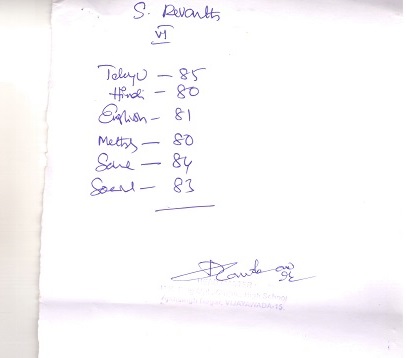 S. Revanth
VI
Telugu – 85
Hindi – 80
English – 81
Maths – 80
Scne – 84
Social – 83